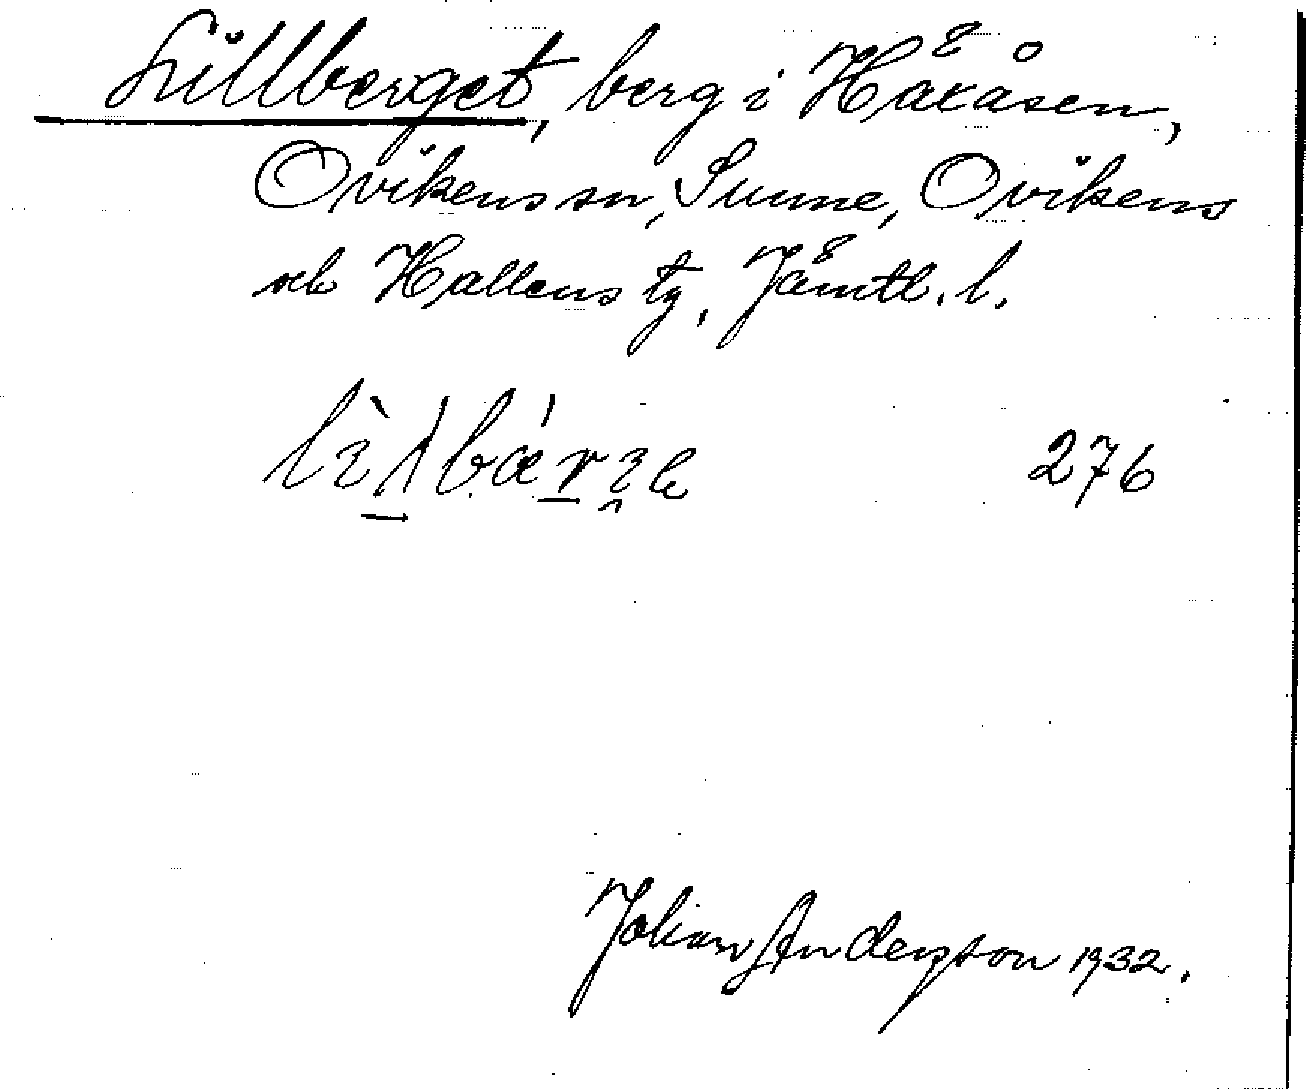 Lillberget, berg i Håkåsen,
Ovikens sn, Sunne, Ovikens
och Hallens tg, Jämtl. l.
276
Johan Anderzson 1932.